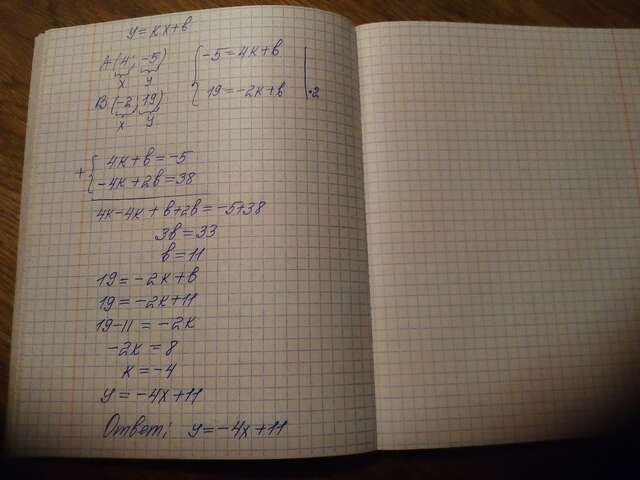 y = kx + b
A (4; -5)
x y
B (-2; 19)
x y
-5 = 4k + b
19 = -2k + b | ·2
+ { 4k + b = -5
-4k + 2b = 38
4k - 4k + b + 2b = -5 + 38
3b = 33
b = 11
19 = -2k + b
19 = -2k + 11
19 - 11 = -2k
-2k = 8
k = -4
y = -4x + 11
Ответ: y = -4x + 11